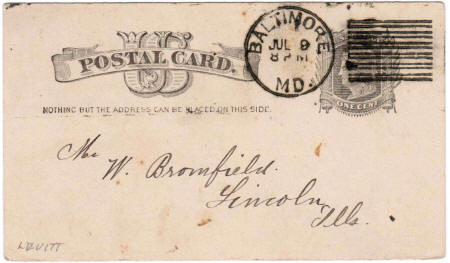 US
POSTAL CARD.
NOTHING BUT THE ADDRESS CAN BE PLACED ON THIS SIDE.
BALTIMORE
JUL 9
8 PM
MD.
ONE CENT
Mr W. Bromfield.
Lincoln,
Ills.
LEVITT